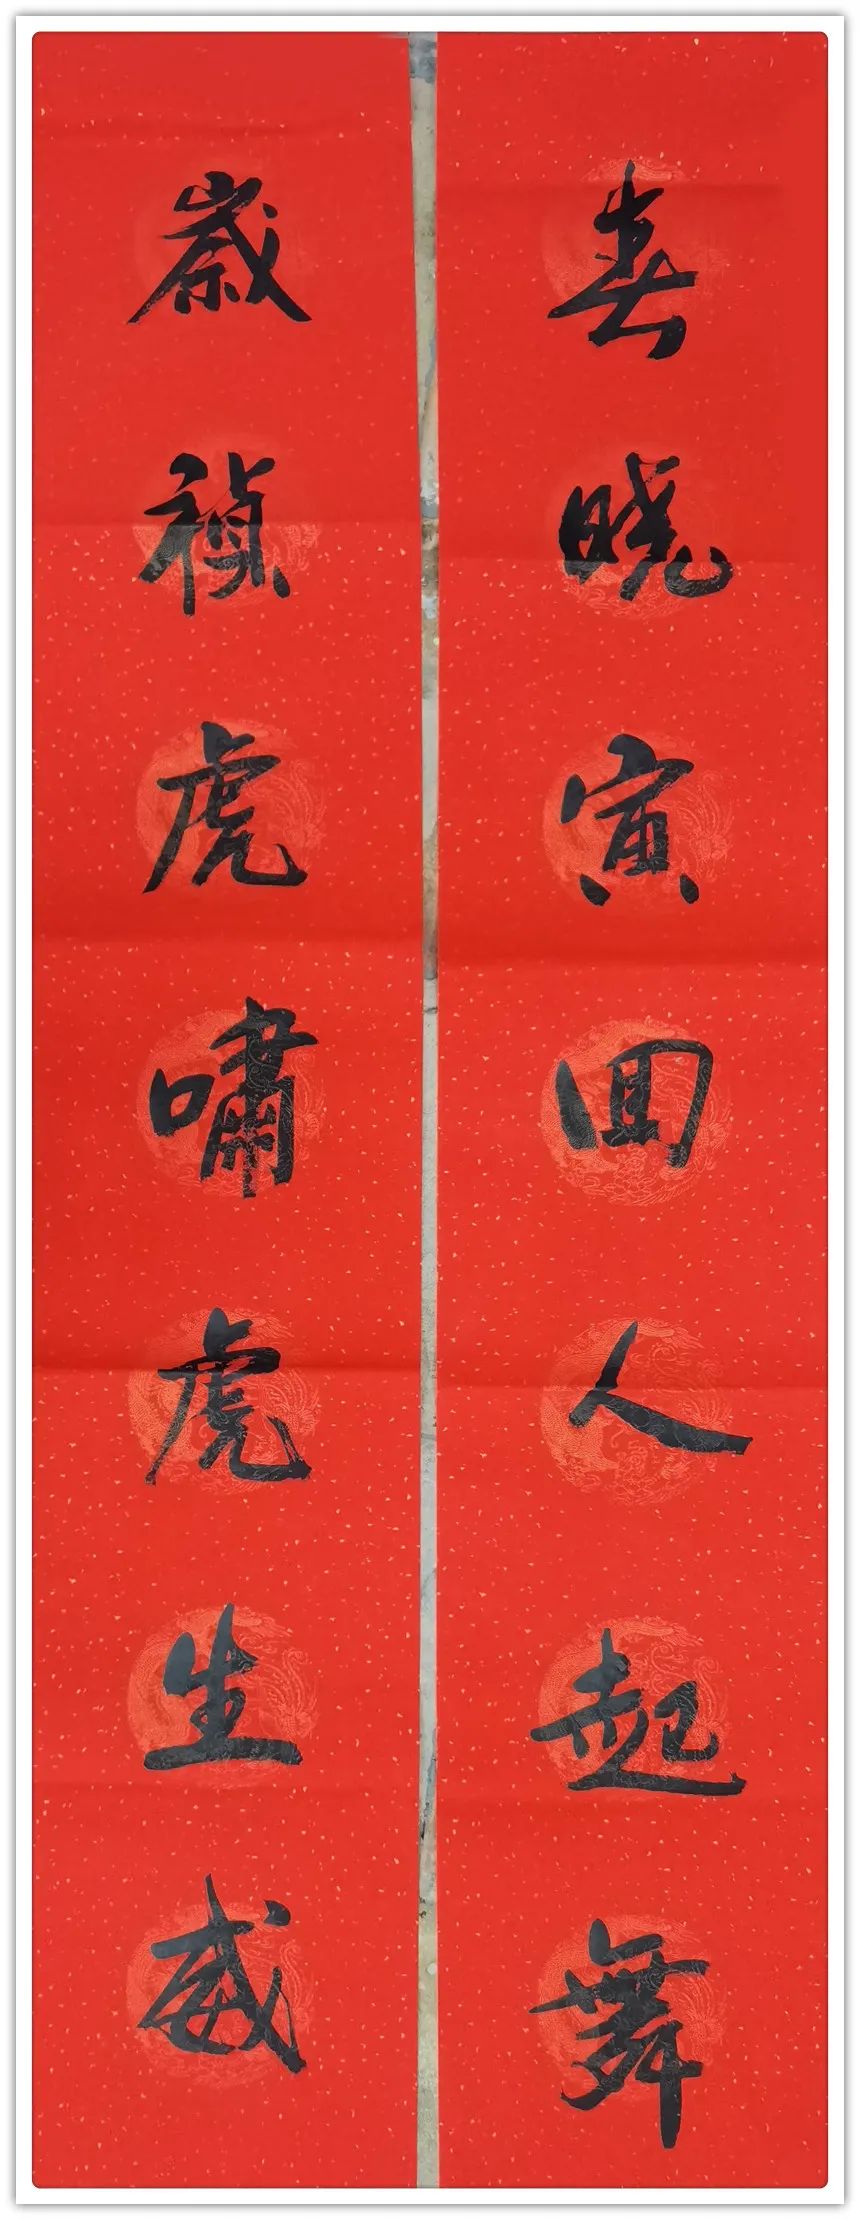 春晓寅回人起舞
岁祯虎啸虎生威